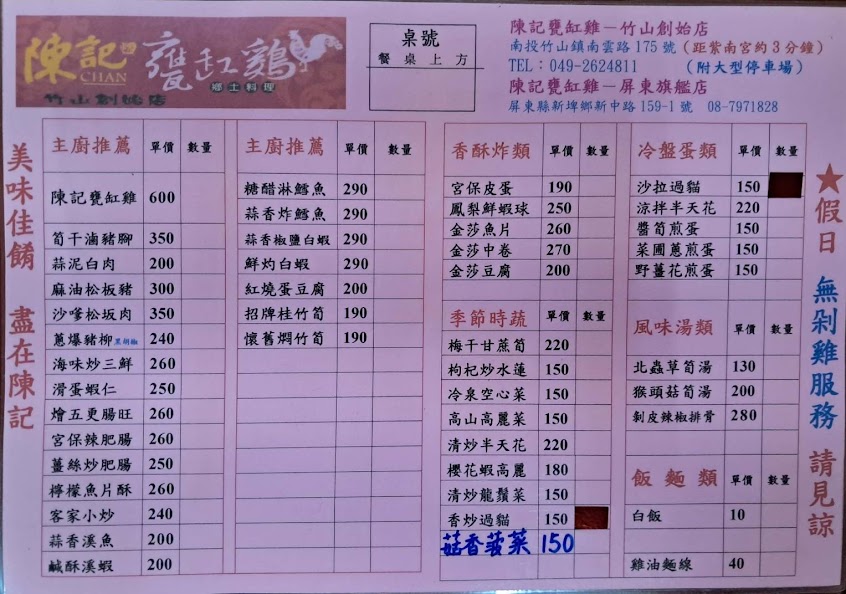 陳記 甕缸鷄
CHAN
鄉土料理
竹山創始店
桌號
餐桌上方
陳記甕缸雞－竹山創始店
南投竹山鎮南雲路175號（距紫南宮約3分鐘）
TEL：049-2624811 （附大型停車場）
陳記甕缸雞－屏東旗艦店
屏東縣新埤鄉新中路159-1號 08-7971828
美味佳餚 盡在陳記
主廚推薦 單價 數量
陳記甕缸雞 600
筍干滷豬腳 350
蒜泥白肉 200
麻油松板豬 300
沙爹松坂肉 350
蔥爆豬柳 黑胡椒 240
海味炒三鮮 260
滑蛋蝦仁 250
燴五更腸旺 260
宮保辣肥腸 260
薑絲炒肥腸 250
檸檬魚片酥 260
客家小炒 240
蒜香溪魚 200
鹹酥溪蝦 200
主廚推薦 單價 數量
糖醋淋鱈魚 290
蒜香炸鱈魚 290
蒜香椒鹽白蝦 290
鮮灼白蝦 290
紅燒蛋豆腐 200
招牌桂竹筍 190
懷舊燜竹筍 190
香酥炸類 單價 數量
宮保皮蛋 190
鳳梨鮮蝦球 250
金莎魚片 260
金莎中卷 270
金莎豆腐 200
季節時蔬 單價 數量
梅干甘蔗筍 220
枸杞炒水蓮 150
冷泉空心菜 150
高山高麗菜 150
清炒半天花 220
櫻花蝦高麗 180
清炒龍鬚菜 150
香炒過貓 150
菇香菠菜 150
冷盤蛋類 單價 數量
沙拉過貓 150
涼拌半天花 220
醬筍煎蛋 150
菜圃蔥煎蛋 150
野薑花煎蛋 150
風味湯類 單價 數量
北蟲草筍湯 130
猴頭菇筍湯 200
剝皮辣椒排骨 280
飯麵類 單價 數量
白飯 10
雞油麵線 40
★假日 無剁雞服務 請見諒